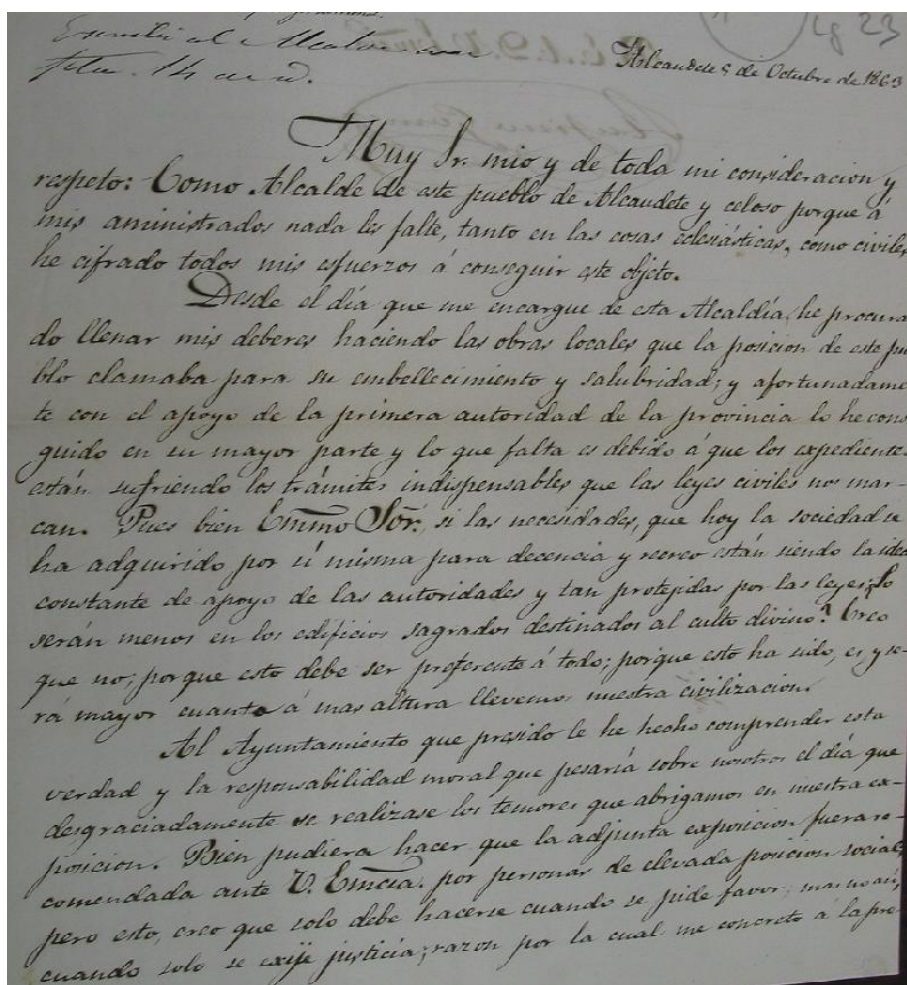 lg 23
Escribí al Alcalde
fha. 14 
Alcaudete 5 de Octubre de 1863
Muy Sr. mio y de toda mi consideracion y
respeto: Como Alcalde de este pueblo de Alcaudete y celoso porque á
mis aministrados nada les falte, tanto en las cosas eclesiásticas, como civiles,
he cifrado todos mis esfuerzos á conseguir este objeto.
Desde el día que me encargue de esta Alcaldía, he procura
do llenar mis deberes haciendo las obras locales que la posicion de este pue
blo clamaba para su embellecimiento y salubridad; y afortunadame
te con el apoyo de la primera autoridad de la provincia lo he conse
guido en su mayor parte y lo que falta es debido á que los expedientes
están sufriendo los trámites indispensables que las leyes civiles nos mar-
can. Pues bien Emmo Sor. si las necesidades, que hoy la sociedad se
ha adquirido por sí misma para decencia y recreo están siendo la idea
constante de apoyo de las autoridades y tan protejidas por las leyes; lo
serán menos en los edificios sagrados destinados al culto divino? Creo
que no; porque esto debe ser preferente á todo; porque esto ha sido, es y se-
rá mayor cuanto á mas altura llevemos nuestra civilizacion.
Al Ayuntamiento que presido le he hecho comprender esta
verdad y la responsabilidad moral que pesaría sobre nosotros el día que
desgraciadamente se realizase los temores que abrigamos en nuestra ex-
posicion. Bien pudiera hacer que la adjunta exposicion fuera re-
comendada ante V. Emcia. por personas de elevada posicion social,
pero esto, creo que solo debe hacerse cuando se pide favor, mas no así,
cuando solo se exije justicia; razon por la cual me concreto á la pre